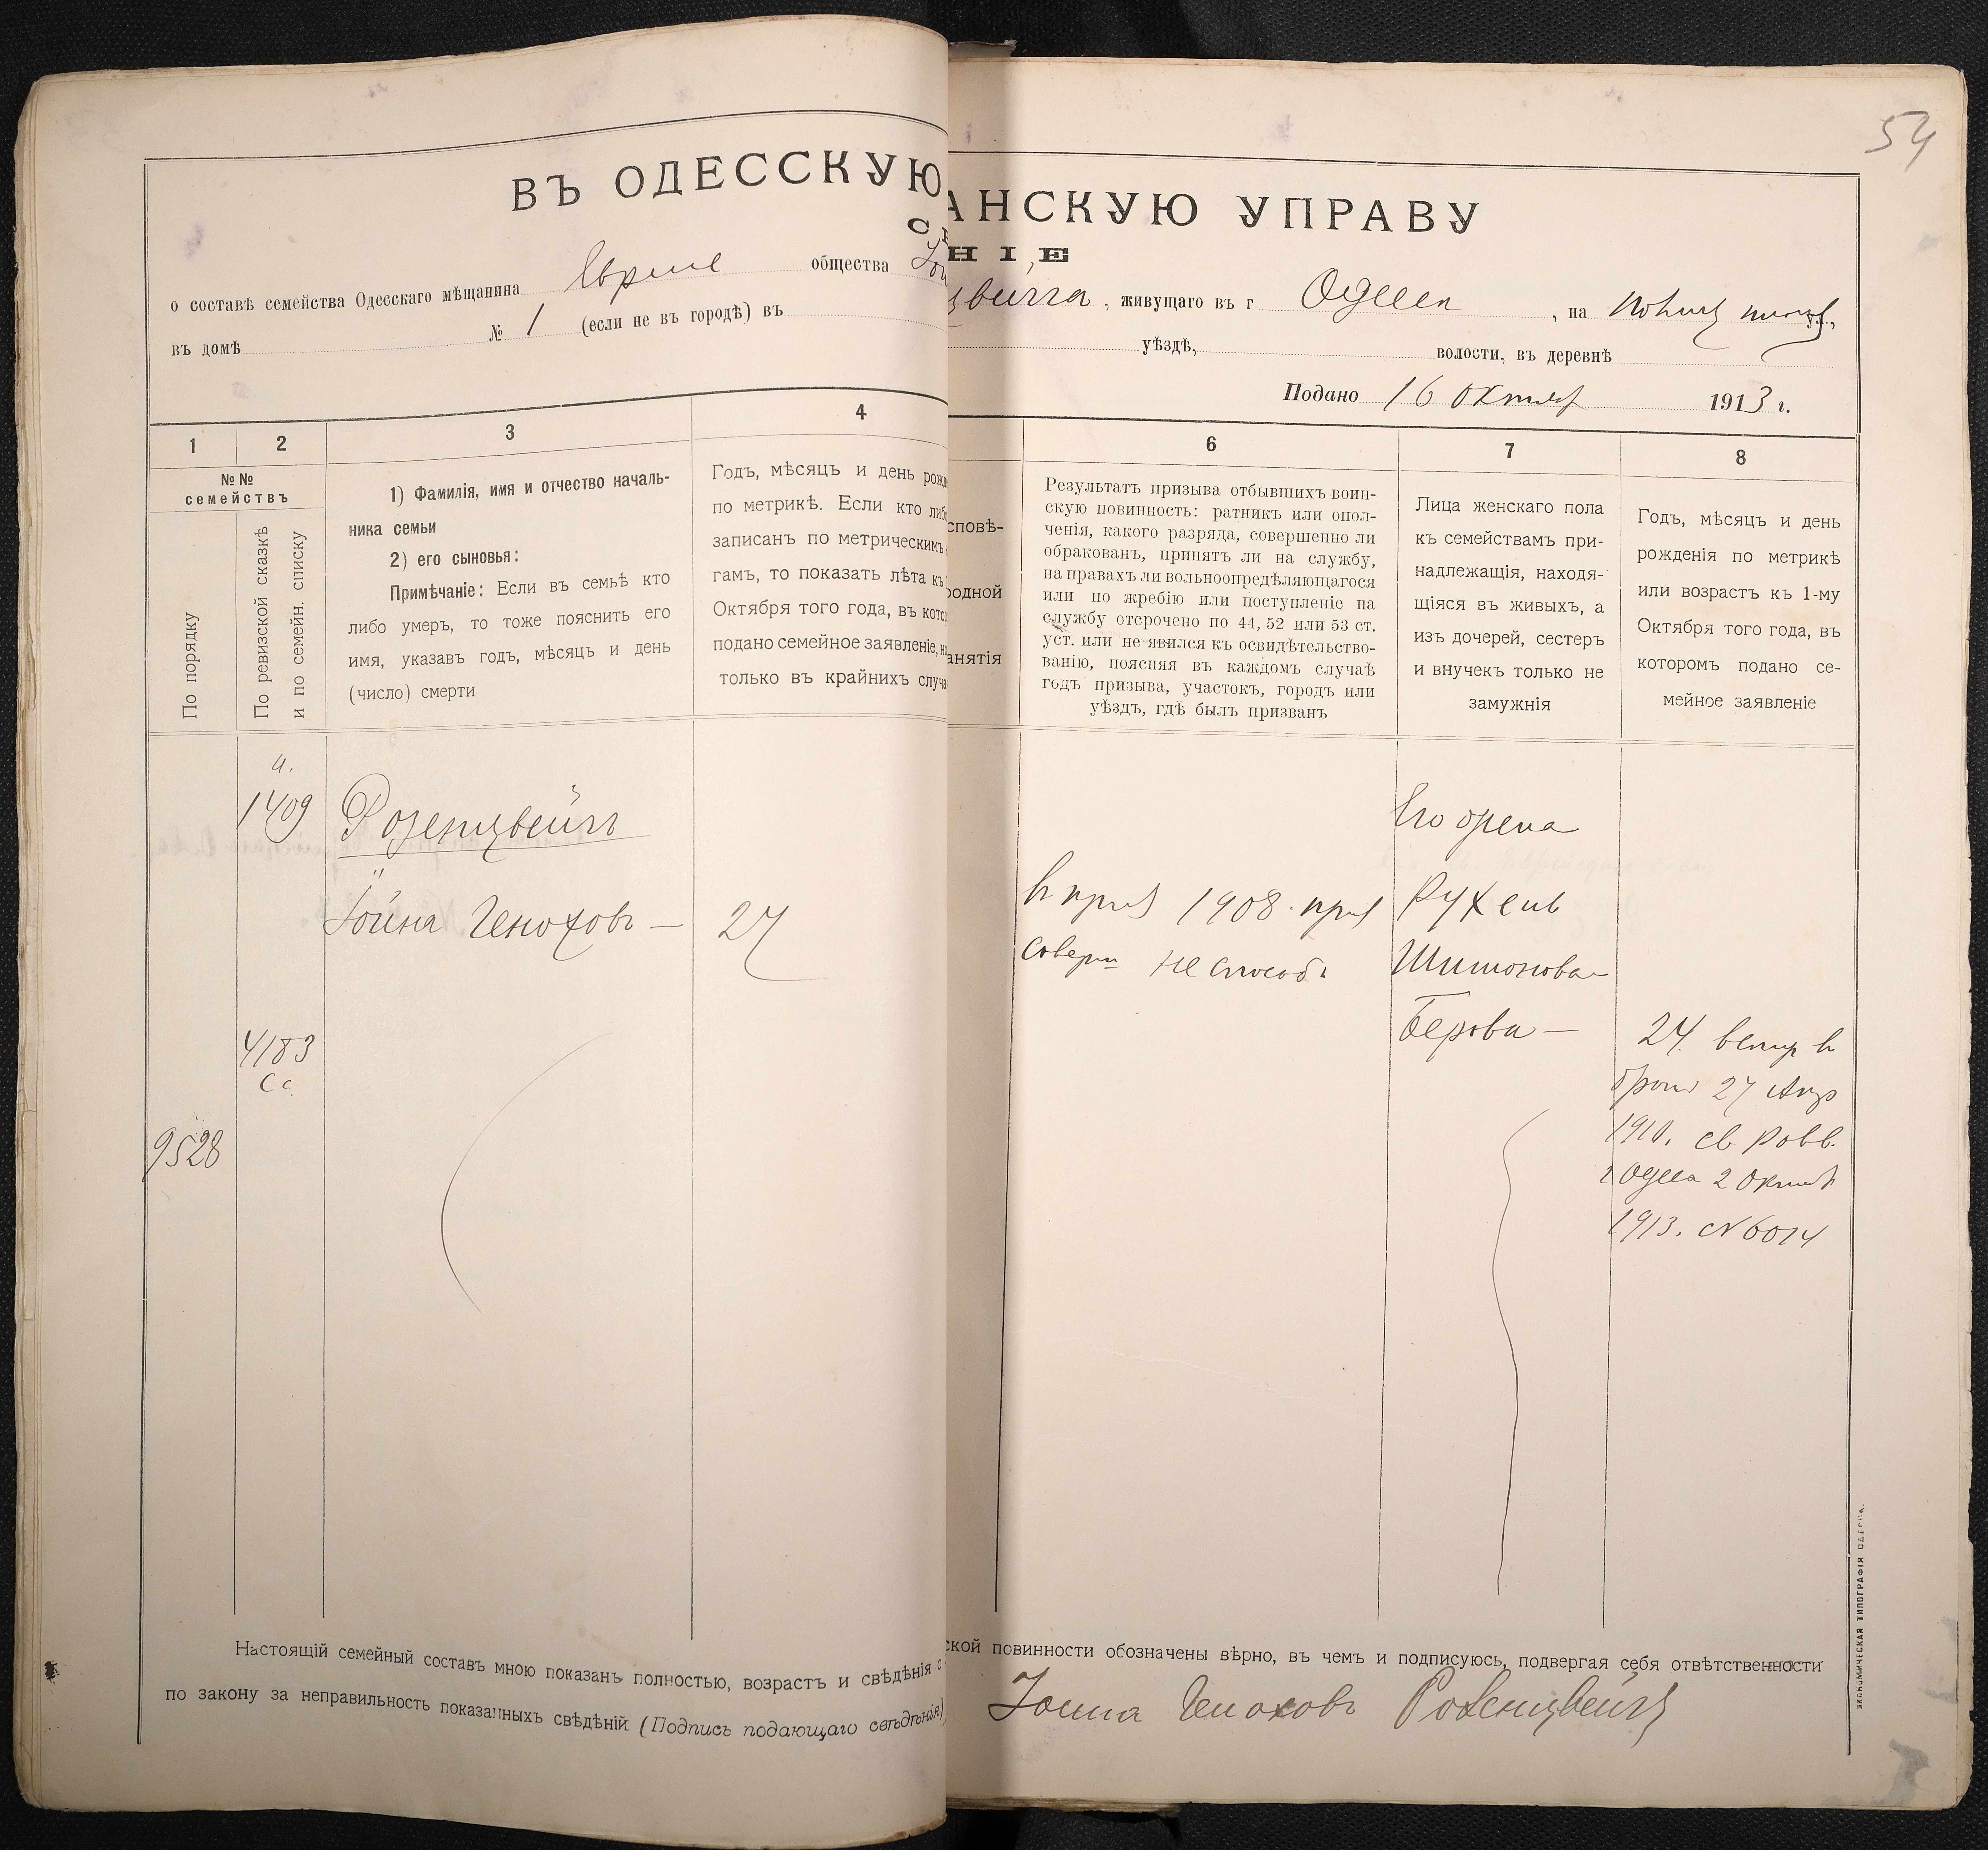 54
ВЪ ОДЕССКУЮ АНСКУЮ УПРАВУ
НІЕ
о составѣ семейства Одесскаго мѣщанина Евр общества , живущаго въ г Одесса , на ул.,
въ домѣ № 1 (если не въ городѣ) въ уѣздѣ, волости, въ деревнѣ
Подано 16 октяб 1913 г.
1
2
3
4
6
7
8
№№
семействъ
По порядку
По ревизской сказкѣ
и по семейн. списку
1) Фамилія, имя и отчество началь-
ника семьи
2) его сыновья:
Примѣчаніе: Если въ семьѣ кто
либо умеръ, то тоже пояснить его
имя, указавъ годъ, мѣсяцъ и день
(число) смерти
Годъ, мѣсяцъ и день рожд
по метрикѣ. Если кто либ
записанъ по метрическимъ
гамъ, то показать лѣта къ
Октября того года, въ кото
подано семейное заявленіе, н
только въ крайнихъ случа
сповѣ-
родной
анятія
Результатъ призыва отбывшихъ воин-
скую повинность: ратникъ или опол-
ченія, какого разряда, совершенно ли
обракованъ, принятъ ли на службу,
на правахъ ли вольноопредѣляющагося
или по жребію или поступленіе на
службу отсрочено по 44, 52 или 53 ст.
уст. или не явился къ освидѣтельство-
ванію, поясняя въ каждомъ случаѣ
годъ призыва, участокъ, городъ или
уѣздъ, гдѣ былъ призванъ
Лица женскаго пола
къ семействамъ при-
надлежащія, находя-
щіяся въ живыхъ, а
изъ дочерей, сестеръ
и внучекъ только не
замужнія
Годъ, мѣсяцъ и день
рожденія по метрикѣ
или возрастъ къ 1-му
Октября того года, въ
которомъ подано се-
мейное заявленіе
1409
Розенцвейгъ
Іойна Генохов — 27
4183
Сс
9528
в приз 1908 приз
соверш не способ
Его жена
Рухель
Шимонова-
Берова —
24. вступ в
брак 27 Апр
1910. св Равв.
г Одесса 2 Октяб
1913. № 6014
Настоящій семейный составъ мною показанъ полностью, возрастъ и свѣдѣнія о ской повинности обозначены вѣрно, въ чемъ и подписуюсь, подвергая себя отвѣтственности
по закону за неправильность показанныхъ свѣдѣній (Подпись подающаго свѣдѣнія) Іойна Геноховъ Розенцвейгъ
ЭКОНОМИЧЕСКАЯ ТИПОГРАФІЯ ОДЕССА.